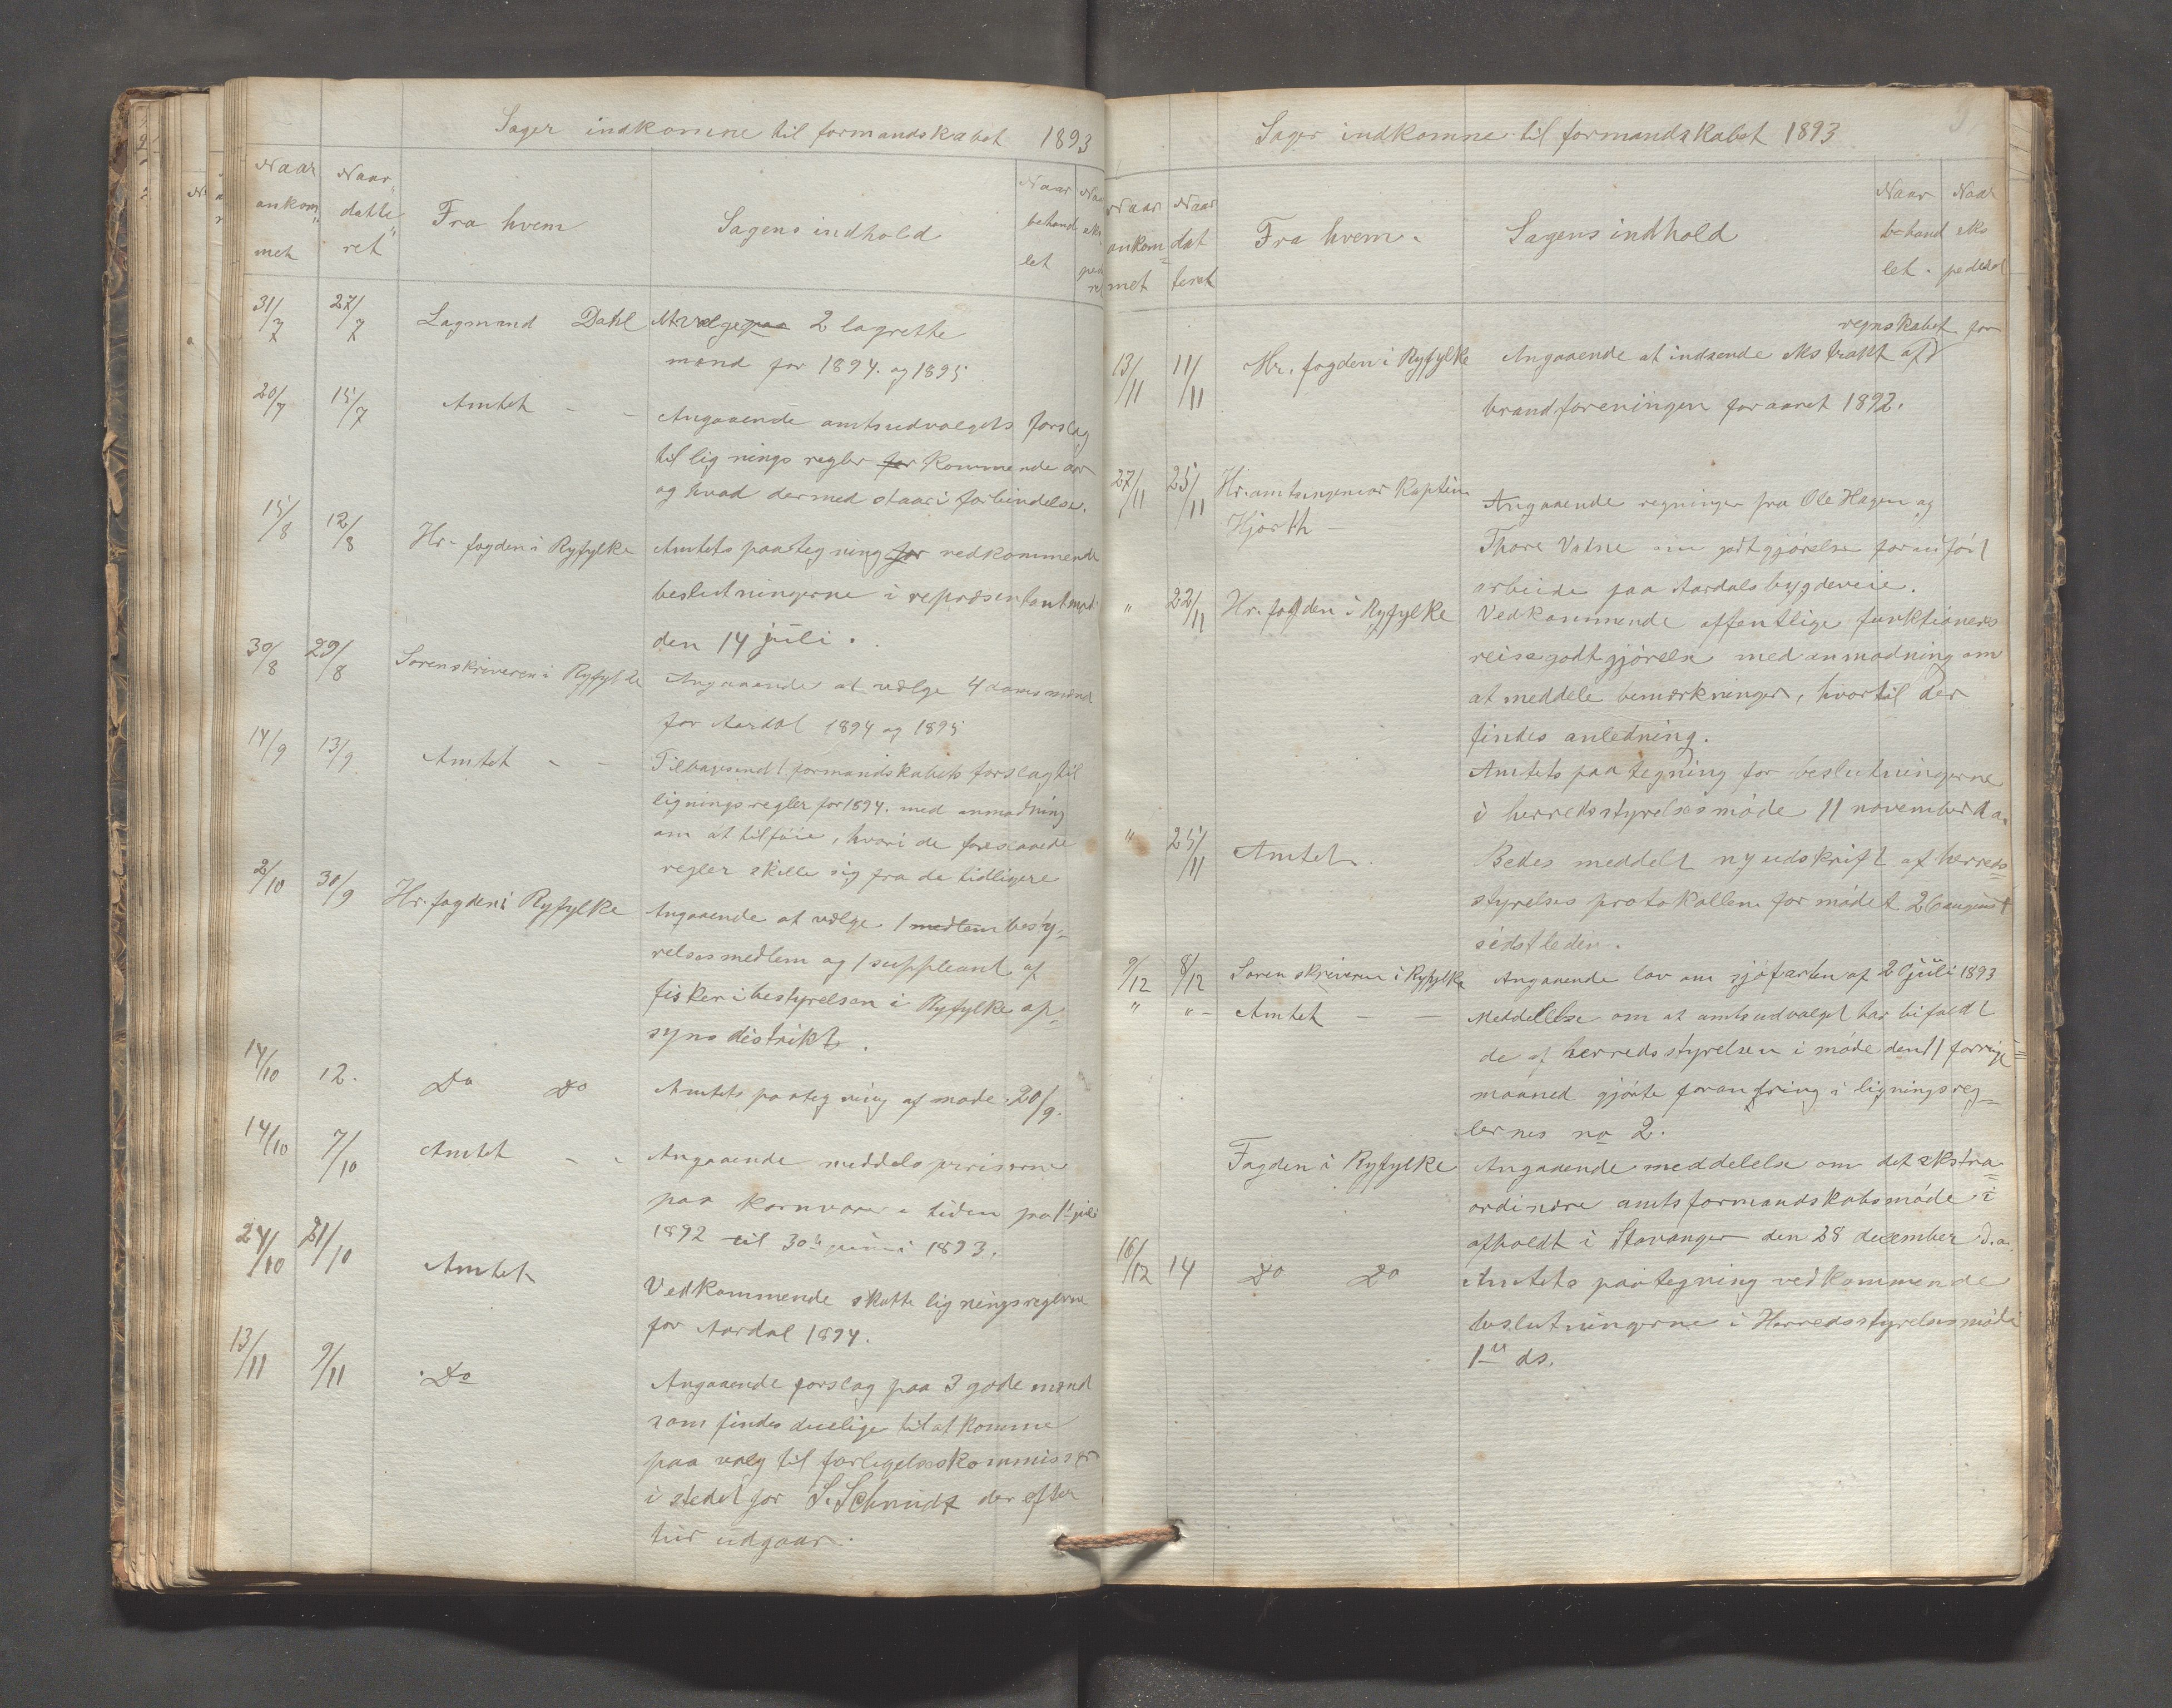 Sager indkomne til formandskabet 1893
Naar ankom met
Naar datte ret
Fra hvem
Sagens indhold
Naar behand let
31/7 27/7 Lagmand Dahl At vælge paa 2 lagrette
mænd for 1894. og 1895
20/7 15/7 Amtet - - Angaaende amtsudvalgets forslag
til lignings regler for kommende aar
og hvad dermed staar i forbindelse.
15/8 12/8 Hr. fogden i Ryfylke Amtets paategning for vedkommende
beslutningerne i repræsentantmøde
den 14 juli.
30/8 29/8 Sorenskriveren i Ryfylke Angaaende at vælge 4 domsmænd
for Aardal 1894 og 1895
14/9 13/9 Amtet - - Tilbagesendt formandskabets forslag til
ligningsregler for 1894. med anmodning
om at tilføie, hvori de foreslaaede
regler skille sig fra de tidligere
2/10 30/9 Hr. fogden i Ryfylke Angaaende at vælge 1 medlem besty=
relsesmedlem og 1 suppleant af
fiskeribestyrelsen i Ryfylke op=
syns distrikt.
14/10 12. Do Do Amtets paategning af møde 20/9.
14/10 7/10 Amtet - - Angaaende middelspriserne
paa kornvarer i tiden fra 1ste juli
1892 til 30te juni 1893.
24/10 21/10 Amtet Vedkommende skatteligningsreglerne
for Aardal 1894.
13/11 9/11 Do Angaaende forslag paa 3 gode mænd
som findes duelige til at komme
paa valg til forligelseskommissær
i stedet for S. Schmidt der efter
tur udgaar.
Sager indkomne til formandskabet 1893
Naar ankom= met
Naar dat teret
Fra hvem.
Sagens indhold
Naar behand let.
Naar eks pederet
regnskabet for
13/11 11/11 Hr. fogden i Ryfylke Angaaende at indsende ekstrakt af
brandforeningen for aaret 1892.
27/11 25/11 Hr. amtsingeniør Kaptein Angaaende regninger fra Ole Hagen og
Hjorth - Thore Vatne om godtgjørelse for udført
arbeide paa Aardals bygdeveie.
" 22/11 Hr. fogden i Ryfylke Vedkommende offentlige funktionærs
reisegodtgjørelse med anmodning om
at meddele bemærkninger, hvortil der
findes anledning.
Amtets paategning for beslutningerne
i herredsstyrelsesmøde 11 november d.a.
" 25/11 Amtet. Bedes meddelt ny udskrift af herreds=
styrelses protokollen for mødet 26 august
sidstleden.
9/12 8/12 Sorenskriveren i Ryfylke Angaaende lov om sjøfarten af 20 juli 1893
" " - Amtet - - Meddelelse om at amtsudvalget har bifaldt
de af herredsstyrelsen i møde den 11 forrige
maaned gjorte forandring i ligningsreg=
lernes no 2.
Fogden i Ryfylke Angaaende meddelelse om det ekstra=
ordinære amtsformandskabsmøde i
afholdt i Stavanger den 28 december d.a.
16/12 14 Do Do Amtets paategning vedkommende
beslutningerne i Herredsstyrelsesmøde
1ste ds.